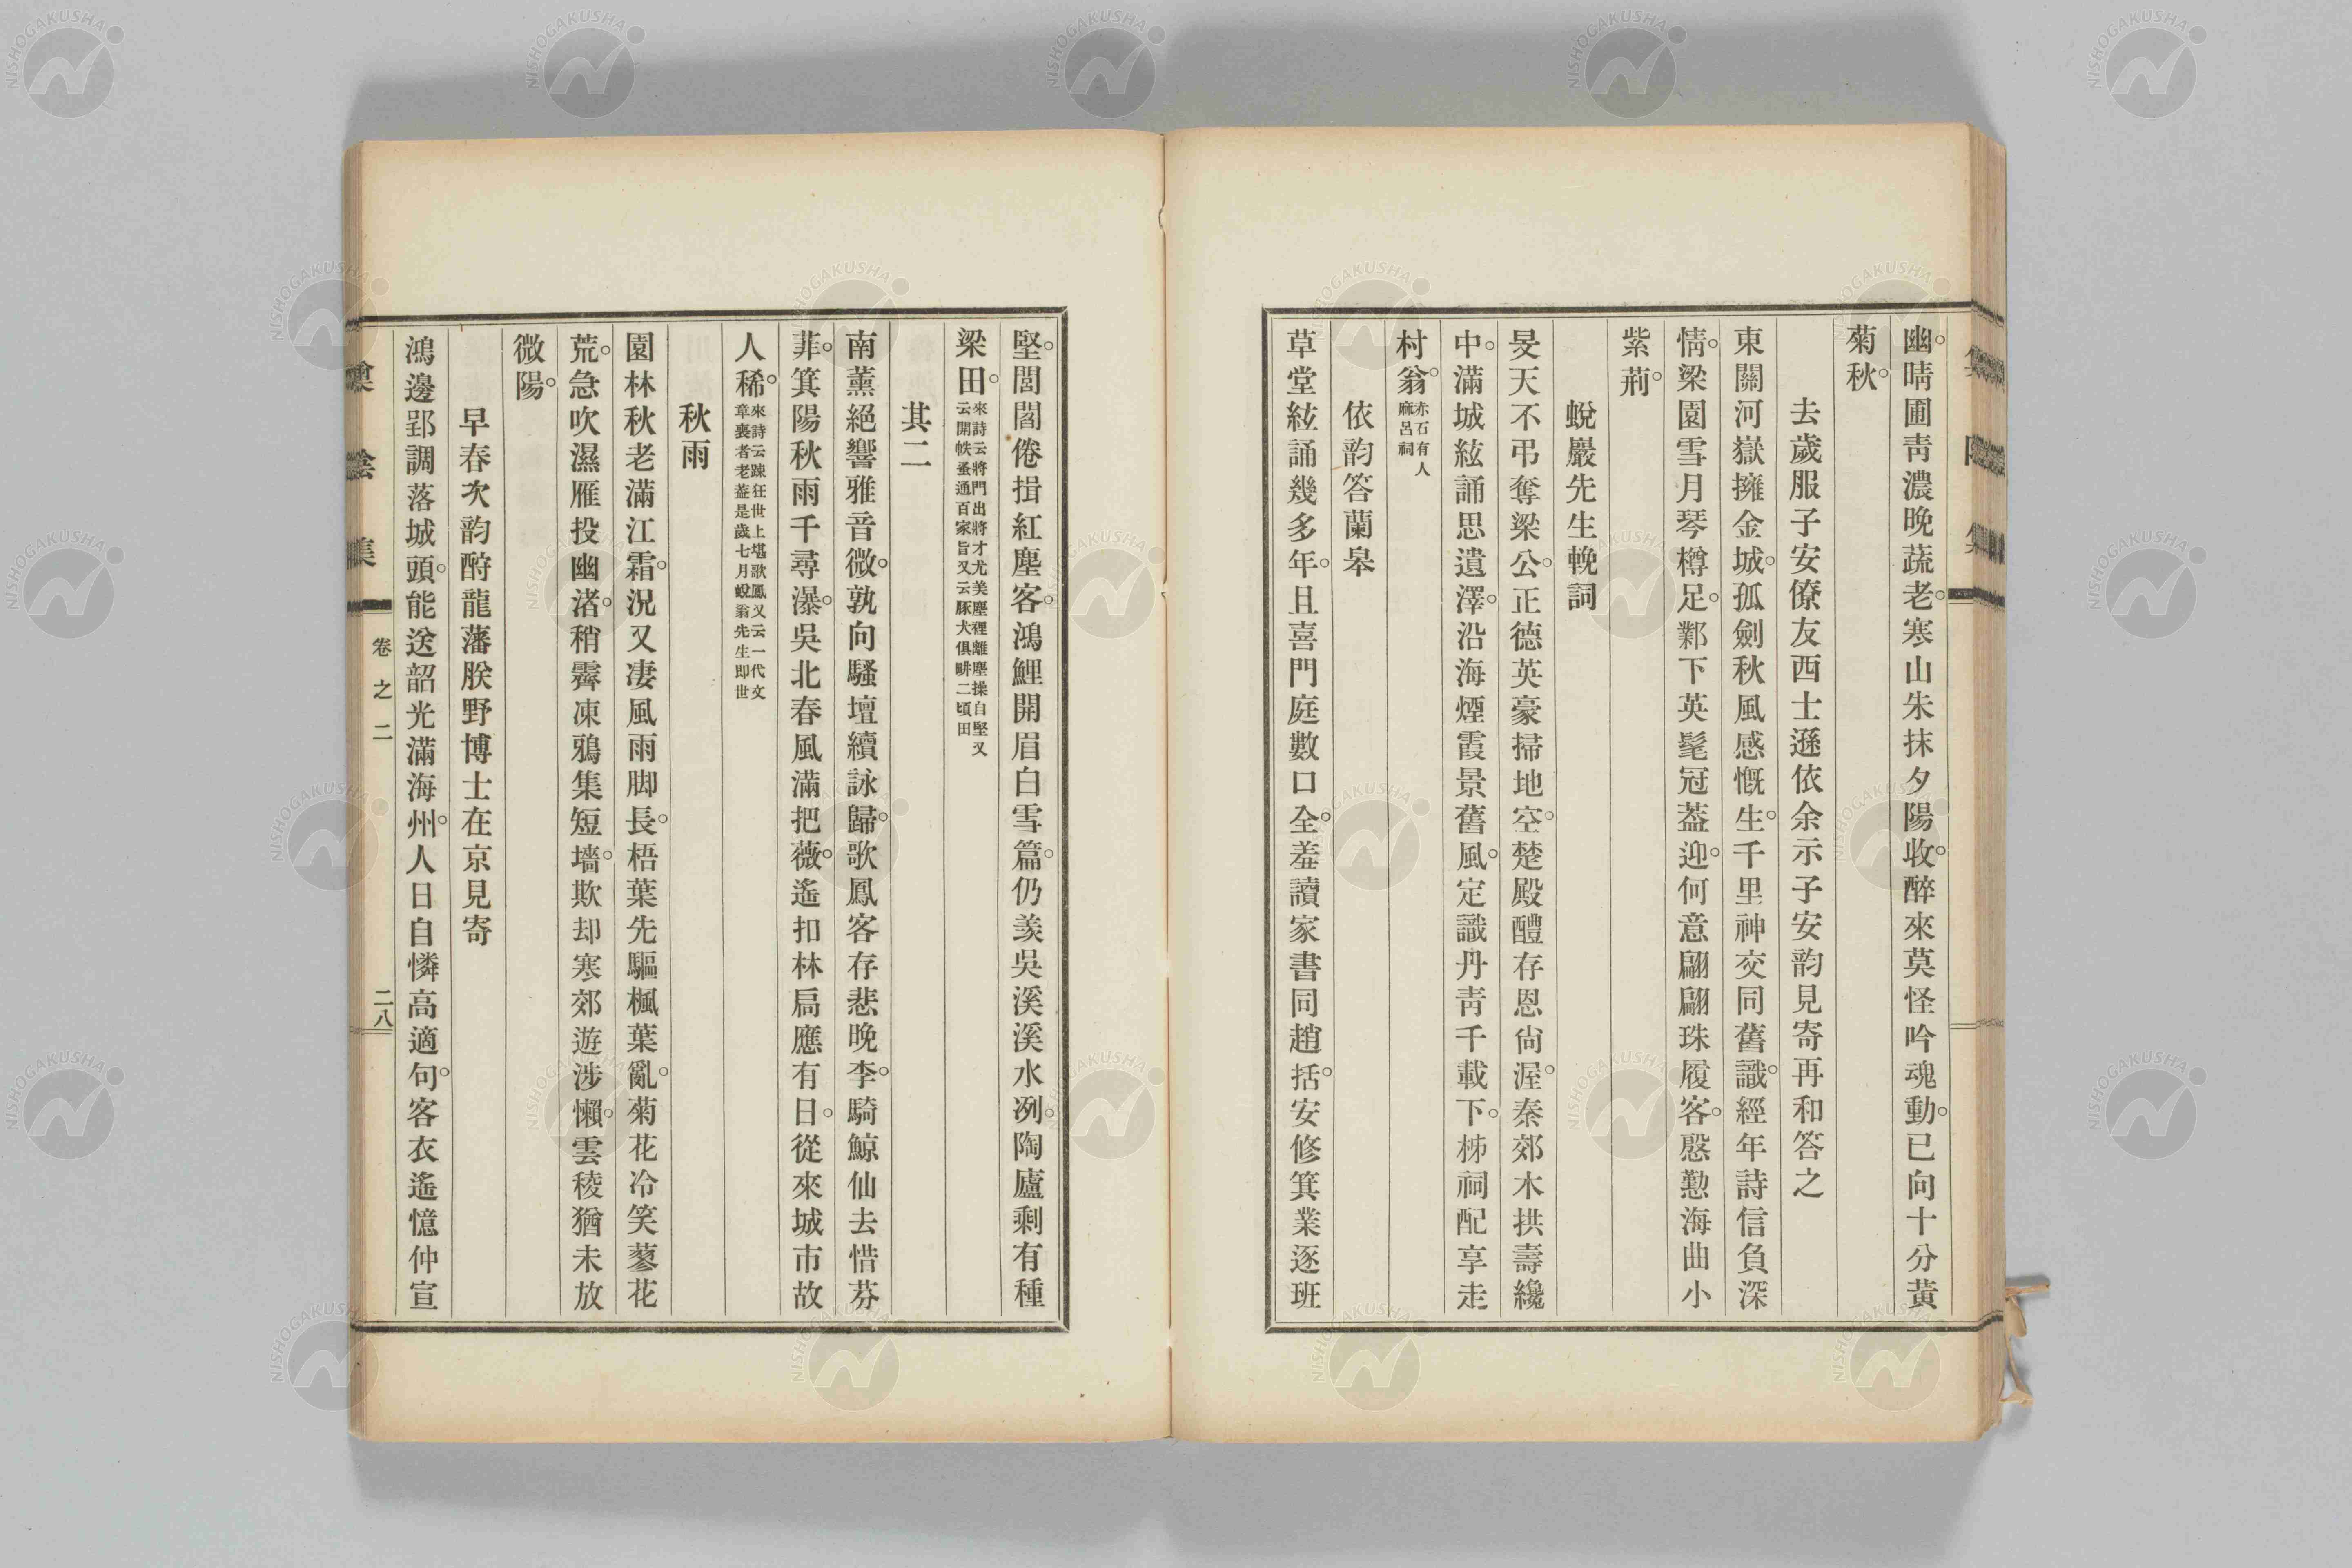 幽。晴圃靑濃晚蔬老。寒山朱抹夕陽收。醉來莫怪吟魂動。已向十分黃
菊秋。
去歲服子安僚友西士遜依余示子安韵見寄再和答之
東關河嶽擁金城。孤劍秋風感慨生。千里神交同舊識。經年詩信負深
情。梁園雪月琴樽足。鄴下英髦冠蓋迎。何意翩翩珠履客。慇懃海曲小
紫荊。
蛻巖先生輓詞
旻天不弔奪梁公。正德英豪掃地空。楚殿醴存恩尙渥。秦郊木拱壽纔
中。滿城絃誦思遺澤。沿海煙霞景舊風。定識丹靑千載下。柹祠配享走
村翁。亦石有人
麻呂祠
依韵答蘭皋
草堂絃誦幾多年。且喜門庭數口全。羞讀家書同趙括。安修箕業逐班
堅。閭閻倦揖紅塵客。鴻鯉開眉白雪篇。仍羨吳溪溪水冽。陶廬剩有種
梁田。來詩云將門出將才尤美塵裡離塵操自堅又
云開帙蚤通百家旨又云豚犬俱畊二頃田
其二
南薰絕響雅音微。孰向騷壇續詠歸。歌鳳客存悲晚李。騎鯨仙去惜芬
菲。箕陽秋雨千尋瀑。吳北春風滿把薇。遙扣林扃應有日。從來城市故
人稀。來詩云踈狂世上堪歌鳳又云一代文
章裏者老蓋是歲七月蛻翁先生即世
秋雨
園林秋老滿江霜。況又凄風雨脚長。梧葉先驅楓葉亂。菊花冷笑蓼花
荒。急吹濕雁投幽渚。稍霽凍鴉集短墻。欺却寒郊遊涉懶。雲稜猶未放
微陽。
早春次韵酧龍藩朕野博士在京見寄
鴻邊郢調落城頭。能送韶光滿海州。人日自憐高適句。客衣遙憶仲宣
集
卷之二
二八
NISHOGAKUSHA